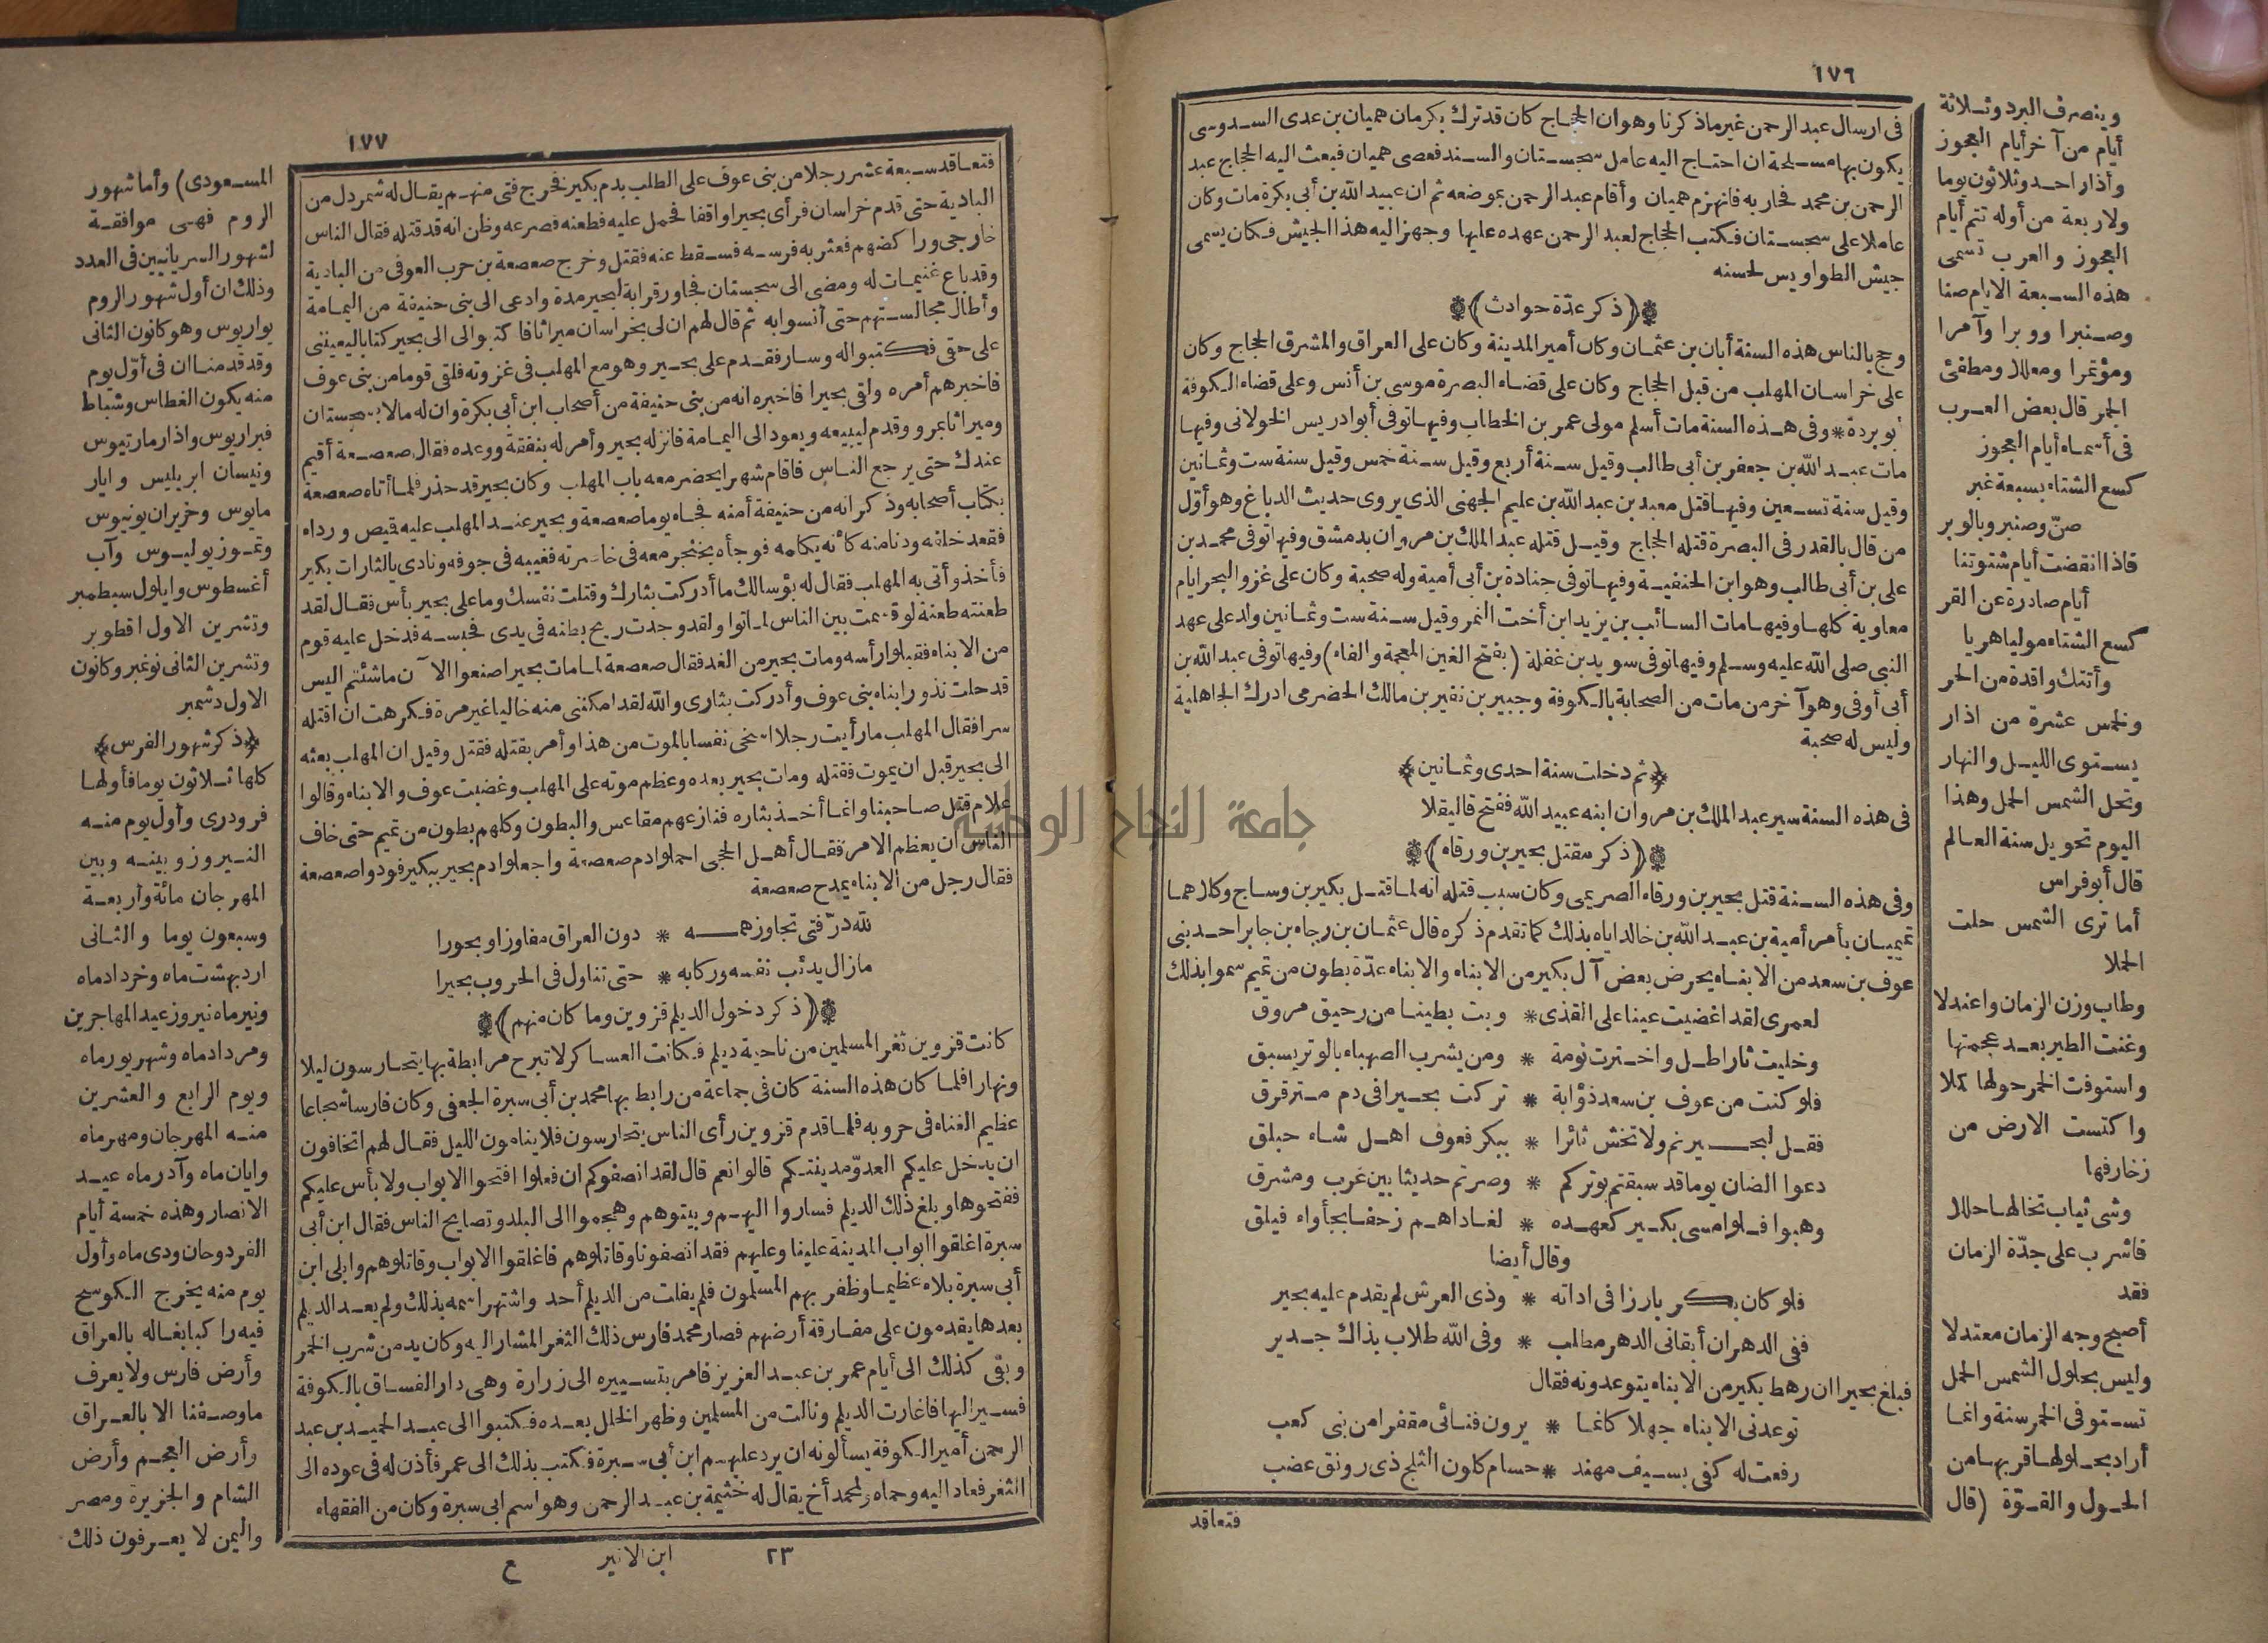 ١٧٦
فى ارسال عبد الرحمن غير ماذكرنا وهو ان الحجاج كان قد ترك بكرمان هميان بن عدى السدوسى
يكون بها مسلحة ان احتاج اليه عامل سجستان والسند فعصى هميان فبعث اليه الحجاج عبد
الرحمن بن محمد فحاربه فانهزم هميان وأقام عبد الرحمن بموضعه ثم ان عبيد الله بن أبى بكرة مات وكان
عاملا على سجستان فكتب الحجاج لعبد الرحمن عهده عليها وجهز اليه هذا الجيش فكان يسمى
جيش الطواويس لحسنه
(ذكر عدّة حوادث)
وحج بالناس هذه السنة أبان بن عثمان وكان أمير المدينة وكان على العراق والمشرق الحجاج وكان
على خراسان المهلب من قبل الحجاج وكان على قضاء البصرة موسى بن أنس وعلى قضاء الكوفة
أبو بردة * وفى هذه السنة مات أسلم مولى عمر بن الخطاب وفيها توفى أبو ادريس الخولانى وفيها
مات عبد الله بن جعفر بن أبى طالب وقيل سنة أربع وقيل سنة خمس وقيل سنة ست وثمانين
وقيل سنة تسعين وفيها قتل معبد بن عبد الله بن عليم الجهنى الذى يروى حديث الدباغ وهو أوّل
من قال بالقدر فى البصرة قتله الحجاج وقيل قتله عبد الملك بن مروان بدمشق وفيها توفى محمد بن
على بن أبى طالب وهو ابن الحنفية وفيها توفى جنادة بن أبى أمية وله صحبة وكان على غزو البحر أيام
معاوية كلها وفيها مات السائب بن يزيد ابن أخت النمر وقيل سنة ست وثمانين ولد على عهد
النبى صلى الله عليه وسلم وفيها توفى سويد بن غفلة (بفتح الغين المعجمة والفاء) وفيها توفى عبد الله بن
أبى أوفى وهو آخر من مات من الصحابة بالكوفة وجبير بن نفير بن مالك الحضرمى ادرك الجاهلية
وليس له صحبة
(ثم دخلت سنة احدى وثمانين)
فى هذه السنة سير عبد الملك بن مروان ابنه عبيد الله ففتح قاليقلا
(ذكر مقتل بحير بن ورقاء)
وفى هذه السنة قتل بحير بن ورقاء الصريمى وكان سبب قتله انه لما قتل بكير بن وساج وكلاهما
تميميان بأمر أمية بن عبد الله بن خالد اياه بذلك كما تقدم ذكره قال عثمان بن رجاء بن جابر احد بنى
عوف بن سعد من الابناء يحرض بعض آل بكير من الابناء والابناء عدّة بطون من تميم سموا بذلك
لعمرى لقد اغضيت عينا على القذى * وبت بطينا من رحيق مروق
وخليت ثارا طل واخترت نومة * ومن يشرب الصهباء بالوتر يسبق
فلو كنت من عوف بن سعد ذؤابة * تركت بحيرا فى دم مترقرق
فقل لبحير نم ولا تخش ثائرا * ببكر فعوف اهل شاء حبلق
دعوا الضان يوما قد سبقتم بوتركم * وصرتم حديثا بين غرب ومشرق
وهبوا فلو امسى بكير كعهده * لغاداهم زحفا بجأواء فيلق
وقال أيضا
فلو كان بكر بارزا فى اداته * وذى العرش لم يقدم عليه بحير
ففى الدهر ان أبقانى الدهر مطلب * وفى الله طلاب بذاك جدير
فبلغ بحيرا ان رهط بكير من الابناء يتوعدونه فقال
توعدنى الابناء جهلا كانما * يرون فنائى مقفرا من بنى كعب
رفعت له كفى بسيف مهند * حسام كلون الثلج ذى رونق عضب
فتعاقد
وينصرف البرد وثلاثة
أيام من آخر أيام العجوز
وآذار احد وثلاثون يوما
ولاربعة من أوله تتم أيام
العجوز والعرب تسمى
هذه السبعة الايام صنا
وصنبرا ووبرا وآمرا
ومؤتمرا ومعللا ومطفئ
الجمر قال بعض العرب
فى أسماء أيام العجوز
كسع الشتاء بسبعة غبر
صنّ وصنبر وبالوبر
فاذا انقضت أيام شتوتنا
أيام صادرة عن القر
كسع الشتاء موليا هربا
وأتتك واقدة من الحر
ولخمس عشرة من اذار
يستوى الليل والنهار
وتحل الشمس الحمل وهذا
اليوم تحويل سنة العالم
قال أبو فراس
أما ترى الشمس حلت
الحملا
وطاب وزن الزمان واعتدلا
وغنت الطير بعد عجمتها
واستوفت الخمر حولها كملا
واكتست الارض من
زخارفها
وشى ثياب تخالها حللا
فاشرب على جدّة الزمان
فقد
أصبح وجه الزمان معتدلا
وليس بحلول الشمس الحمل
تستوفى الخمر سنة وانما
أراد بحلولها قربها من
الحول والقوّة (قال
١٧٧
فتعاقد سبعة عشر رجلا من بنى عوف على الطلب بدم بكير فخرج فتى منهم يقال له شمردل من
البادية حتى قدم خراسان فرأى بحيرا واقفا فحمل عليه فطعنه فصرعه وظن انه قد قتله فقال الناس
خارجى وراكضهم فعثر به فرسه فسقط عنه فقتل وخرج صعصعة بن حرب العوفى من البادية
وقد باع غنيمات له ومضى الى سجستان فجاور قرابة لبحير مدة وادعى الى بنى حنيفة من اليمامة
وأطال مجالستهم حتى أنسوا به ثم قال لهم ان لى بخراسان ميراثا فاكتبوا لى الى بحير كتابا ليعيننى
على حقى فكتبوا له وسار فقدم على بحير وهو مع المهلب فى غزوته فلقى قوما من بنى عوف
فاخبرهم أمره ولقى بحيرا فاخبره انه من بنى حنيفة من أصحاب ابن أبى بكرة وان له مالا بسجستان
وميراثا بمرو وقدم ليبيعه ويعود الى اليمامة فانزله بحير وأمر له بنفقة ووعده فقال صعصعة أقيم
عندك حتى يرجع الناس فاقام شهرا يحضر معه باب المهلب وكان بحير قد حذر فلما أتاه صعصعة
بكتاب أصحابه وذكر انه من حنيفة أمنه فجاء يوما صعصعة وبحير عند المهلب عليه قميص ورداء
فقعد خلفه ودنا منه كأنه يكلمه فوجأه بخنجر معه فى خاصرته فغيبه فى جوفه ونادى يالثارات بكير
فأخذ وأتى به المهلب فقال له بؤسا لك ما أدركت بثارك وقتلت نفسك وما على بحير بأس فقال لقد
طعنته طعنة لو قسمت بين الناس لماتوا ولقد وجدت ريح بطنه فى يدى فحبسه فدخل عليه قوم
من الابناء فقبلوا رأسه ومات بحير من الغد فقال صعصعة لما مات بحير اصنعوا الآن ماشئتم اليس
قد حلت نذور ابناء بنى عوف وأدركت بثارى والله لقد امكننى منه خاليا غير مرة فكرهت ان اقتله
سرا فقال المهلب ما رأيت رجلا اسخى نفسا بالموت من هذا وأمر بقتله فقتل وقيل ان المهلب بعثه
الى بحير قبل ان يموت فقتله ومات بحير بعده وعظم موته على المهلب وغضبت عوف والابناء وقالوا
علام قتل صاحبنا وانما أخذ بثاره فنازعهم مقاعس والبطون وكلهم بطون من تميم حتى خاف
الناس ان يعظم الامر فقال أهل الحجى احملوا دم صعصعة واجعلوا دم بحير ببكير فودوا صعصعة
فقال رجل من الابناء يمدح صعصعة
لله درّ فتى تجاوز همه * دون العراق مفاوزا وبحورا
مازال يدئب نفسه وركابه * حتى تناول فى الحروب بحيرا
(ذكر دخول الديلم قزوين وما كان منهم)
كانت قزوين ثغر المسلمين من ناحية ديلم فكانت العساكر لا تبرح مرابطة بها يتحارسون ليلا
ونهارا فلما كان هذه السنة كان فى جماعة من رابط بها محمد بن أبى سبرة الجعفى وكان فارسا شجاعا
عظيم الغناء فى حروبه فلما قدم قزوين رأى الناس يتحارسون فلا ينامون الليل فقال لهم اتخافون
ان يدخل عليكم العدوّ مدينتكم قالوا نعم قال لقد انصفوكم ان فعلوا افتحوا الابواب ولا بأس عليكم
ففتحوها وبلغ ذلك الديلم فساروا اليهم وبيتوهم وهجموا الى البلد وتصايح الناس فقال ابن أبى
سبرة اغلقوا ابواب المدينة علينا وعليهم فقد انصفونا وقاتلوهم فاغلقوا الابواب وقاتلوهم وابلى ابن
أبى سبرة بلاء عظيما وظفر بهم المسلمون فلم يفلت من الديلم أحد واشتهر اسمه بذلك ولم يعد الديلم
بعدها يقدمون على مفارقة أرضهم فصار محمد فارس ذلك الثغر المشار اليه وكان يدمن شرب الخمر
وبقى كذلك الى أيام عمر بن عبد العزيز فامر بتسييره الى زرارة وهى دار الفساق بالكوفة
فسير اليها فاغارت الديلم ونالت من المسلمين وظهر الخلل بعده فكتبوا الى عبد الحميد بن عبد
الرحمن أمير الكوفة يسألونه ان يرد عليهم ابن أبى سبرة فكتب بذلك الى عمر فأذن له فى عوده الى
الثغر فعاد اليه وحماه ولمحمد أخ يقال له خثيمة بن عبد الرحمن وهو اسم ابى سبرة وكان من الفقهاء
٢٣ ابن الاثير ع
المسعودى) وأما شهور
الروم فهى موافقة
لشهور السريانيين فى العدد
وذلك ان أول شهور الروم
يواريوس وهو كانون الثانى
وقد قدمنا ان فى أوّل يوم
منه يكون الغطاس وشباط
فبراريوس واذار مارتيوس
ونيسان ابريليس وايار
مايوس وحزيران يونيوس
وتموز يوليوس وآب
أغسطوس وايلول سبطمبر
وتشرين الاول اقطوبر
وتشرين الثانى نوغبر وكانون
الاول دشمبر
(ذكر شهور الفرس)
كلها ثلاثون يوما فأولها
فرودرى وأول يوم منه
النيروز وبينه وبين
المهرجان مائة وأربعة
وسبعون يوما والثانى
ارديهشت ماه وخرداد ماه
وتير ماه نيروز عيد المهاجرين
ومرداد ماه وشهريور ماه
ويوم الرابع والعشرين
منه المهرجان ومهر ماه
وابان ماه وآذر ماه عيد
الانصار وهذه خمسة أيام
الفردوحان ودى ماه وأول
يوم منه يخرج الكوسج
فيه راكبا بغاله بالعراق
وأرض فارس ولا يعرف
ماوصفنا الا بالعراق
وأرض العجم وأرض
الشام والجزيرة ومصر
واليمن لا يعرفون ذلك
جامعة النجاح الوطنية